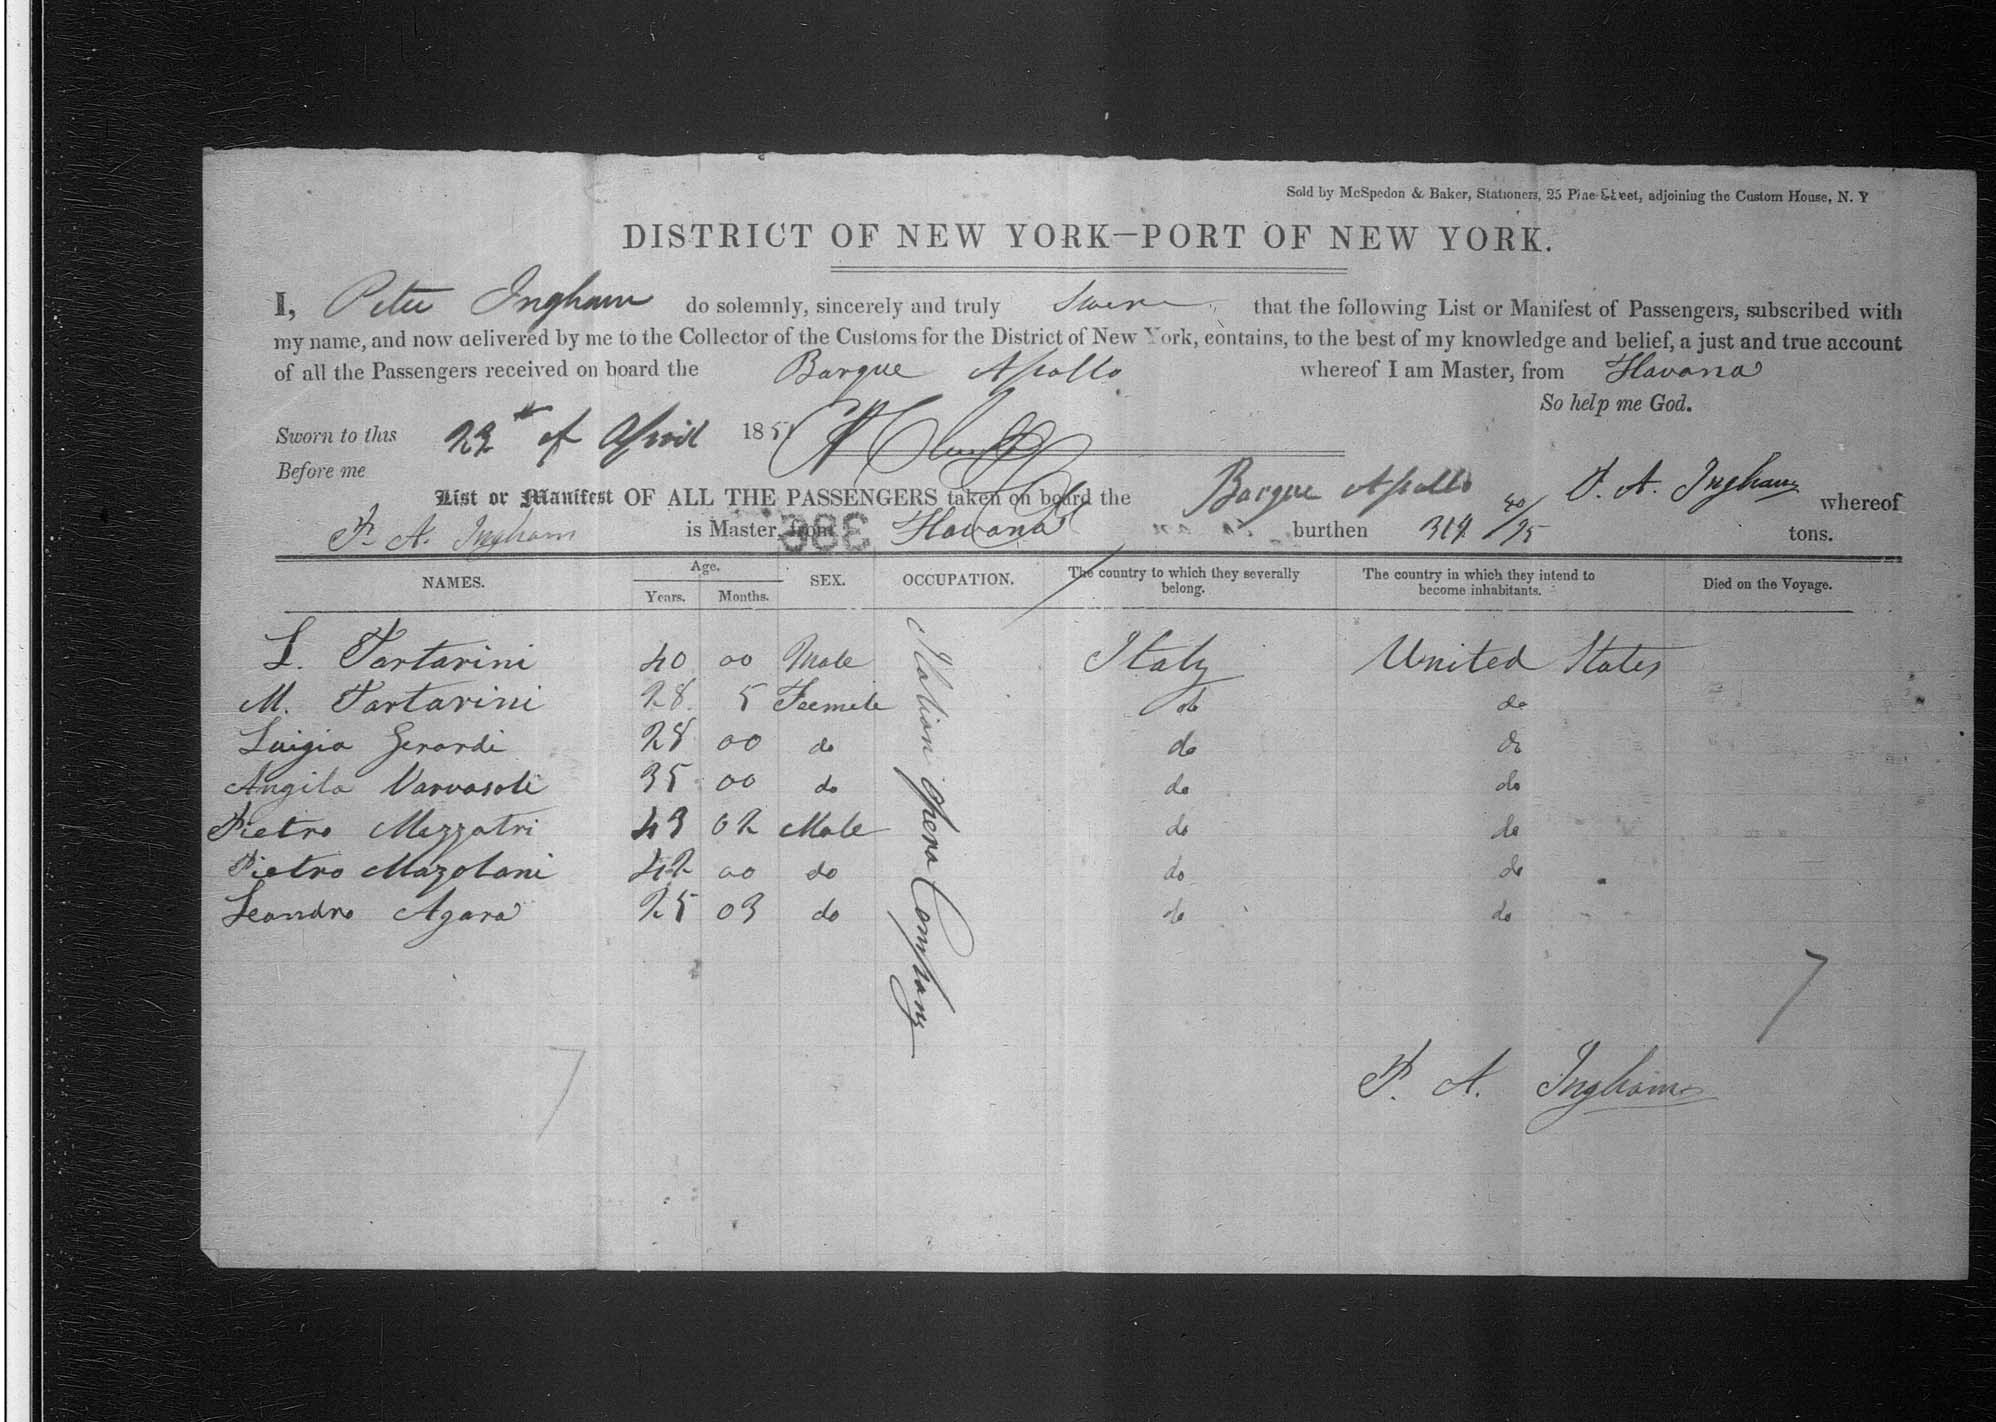 Sold by McSpedon & Baker, Stationers, 25 Pine Street, adjoining the Custom House, N. Y
DISTRICT OF NEW YORK—PORT OF NEW YORK.
I, Peter Ingham do solemnly, sincerely and truly swere that the following List or Manifest of Passengers, subscribed with
my name, and now delivered by me to the Collector of the Customs for the District of New York, contains, to the best of my knowledge and belief, a just and true account
of all the Passengers received on board the Barque Apollo whereof I am Master, from Havana
So help me God.
Sworn to this 22th of April 1851
Before me
List or Manifest OF ALL THE PASSENGERS taken on board the Barque Apollo P. A. Ingham whereof
P. A. Ingham is Master, from Havana burthen 319 40/95 tons.
NAMES. Age. Years. Months. SEX. OCCUPATION. The country to which they severally belong. The country in which they intend to become inhabitants. Died on the Voyage.
L. Tartarini 40 00 Male Italy United States
M. Tartarini 28 5 Feemile do do
Luigia Gerardi 28 00 do do do
Angila Varvasoli 35 00 do do do
Pietro Mezzatri 43 02 Male do do
Pietro Mazolani 42 00 do do do
Leandro Agara 25 03 do do do
Italian opera Company
7
7
P. A. Ingham